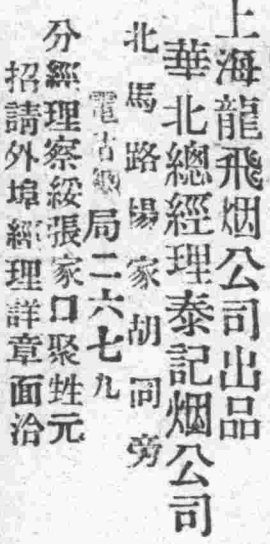 上海龍飛烟公司出品
華北總經理泰記烟公司
北馬路楊家胡同旁
電話 局二六七九
分經理察綏張家口聚甡元
招請外埠經理詳章面洽